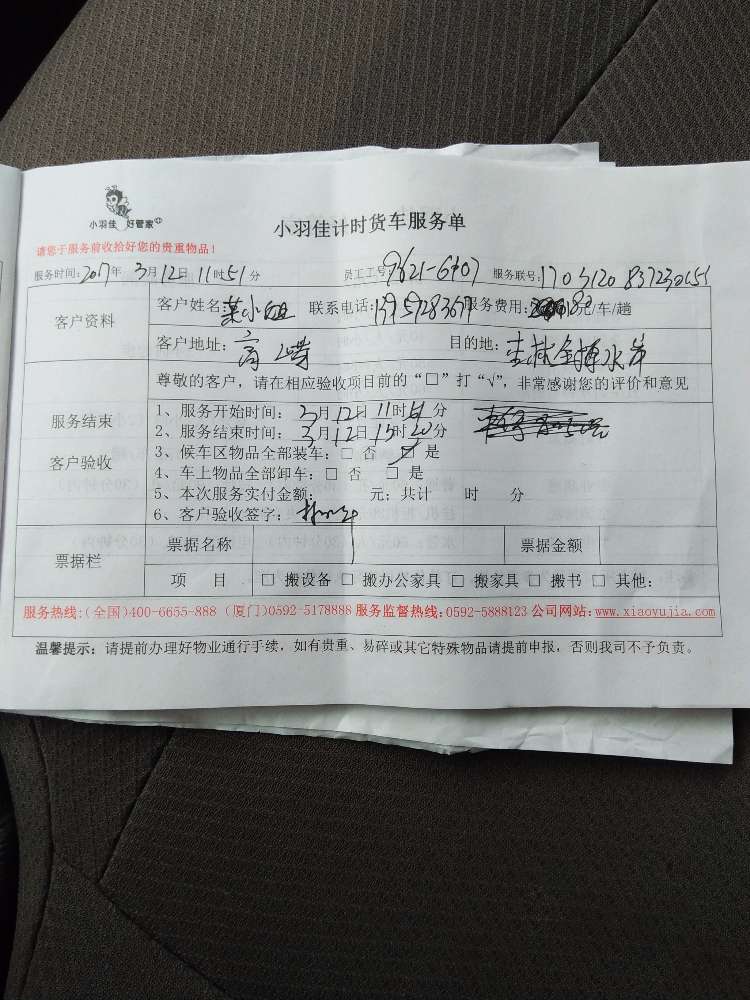 小羽佳 好管家
小羽佳计时货车服务单
请您于服务前收拾好您的贵重物品!
服务时间:2017年 3月12日11时51分 员工工号:9621-6407 服务联号:
客户资料
客户姓名: 小姐 联系电话: 服务费用: 元/车/趟
客户地址: 目的地: 水岸
尊敬的客户,请在相应验收项目前的“□”打“√”,非常感谢您的评价和意见
服务结束
客户验收
1、服务开始时间:3月12日11时51分
2、服务结束时间:3月12日15时20分
3、候车区物品全部装车:□ 否 ☑ 是
4、车上物品全部卸车:□ 否 □ 是
5、本次服务实付金额: 元;共计 时 分
6、客户验收签字:
票据栏
票据名称 票据金额
项 目 □ 搬设备 □ 搬办公家具 □ 搬家具 □ 搬书 □ 其他:
服务热线:(全国)400-6655-888 (厦门)0592-5178888 服务监督热线:0592-5888123 公司网站:www.xiaoyujia.com
温馨提示:请提前办理好物业通行手续,如有贵重、易碎或其它特殊物品请提前申报,否则我司不予负责。